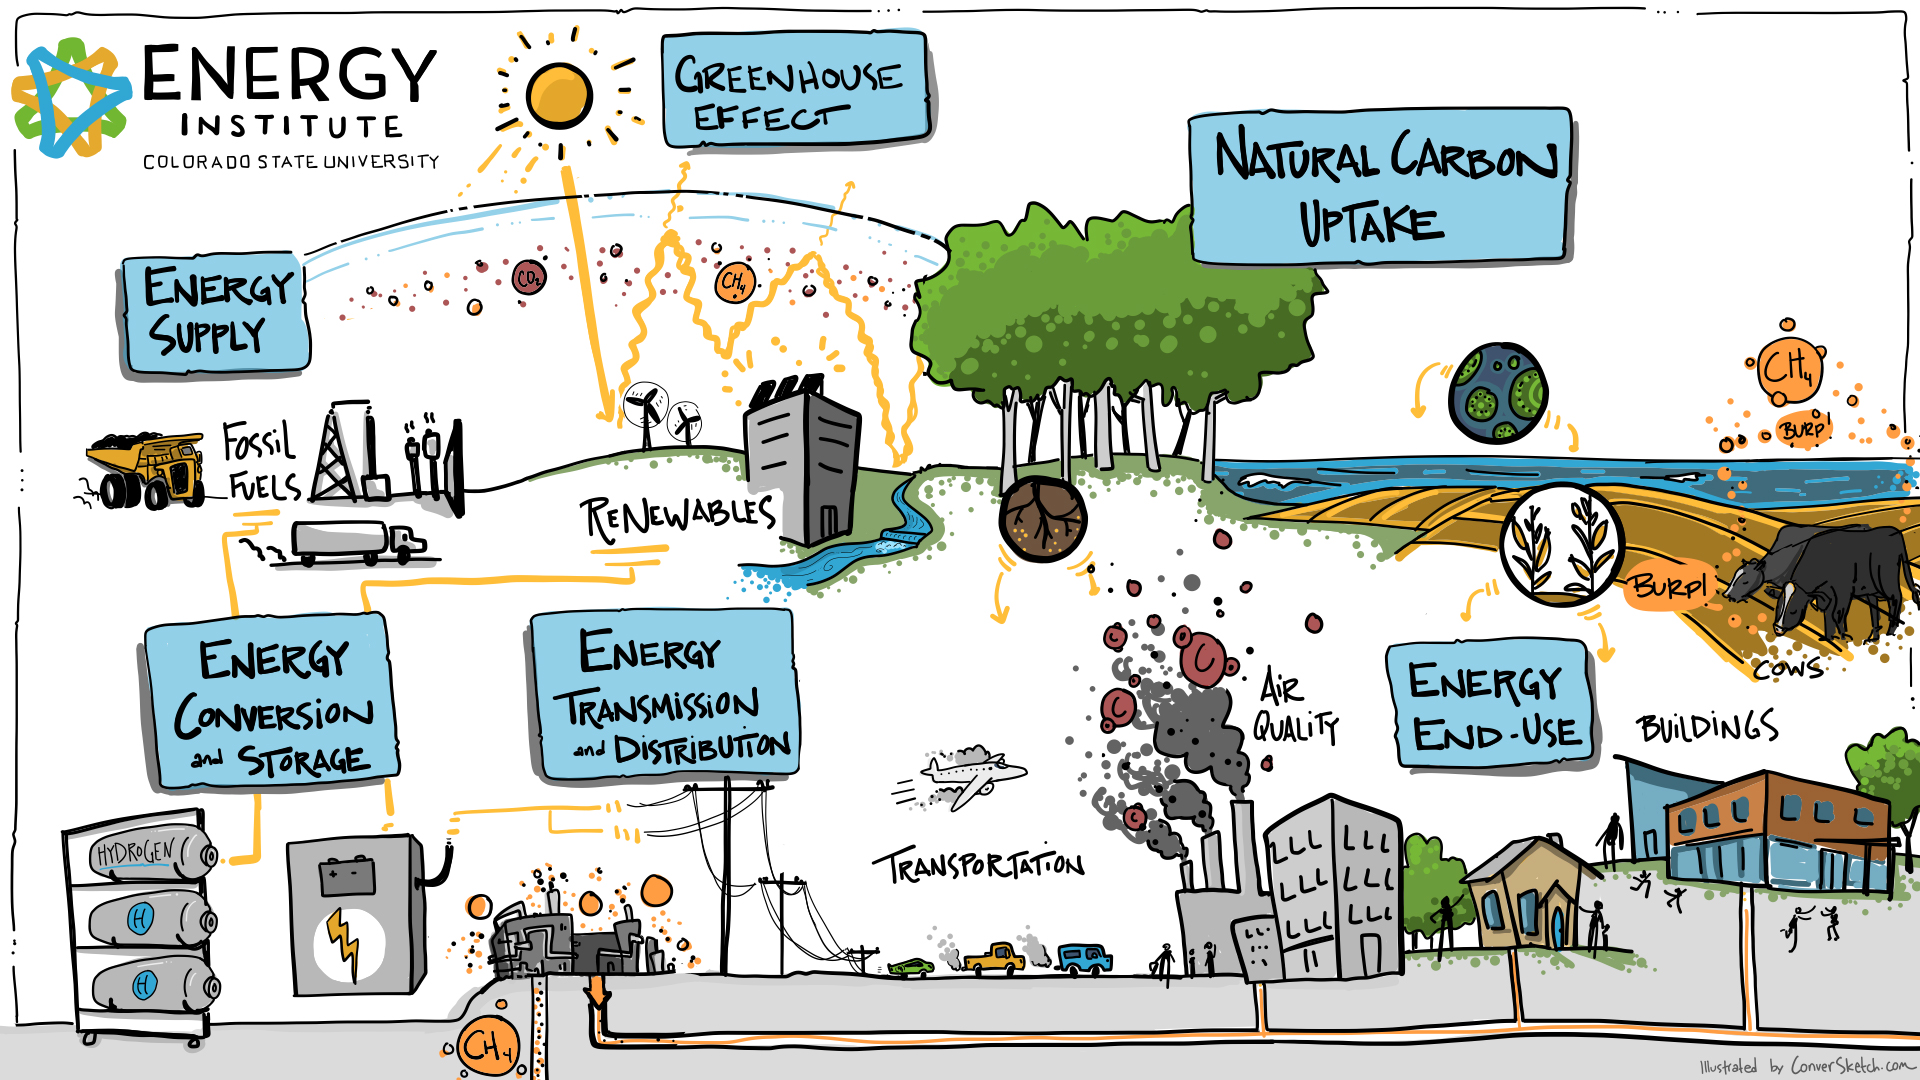 ENERGY
INSTITUTE
COLORADO STATE UNIVERSITY
GREENHOUSE
EFFECT
NATURAL CARBON
UPTAKE
ENERGY
SUPPLY
CO2
CH4
CH4
BURP!
FOSSIL
FUELS
RENEWABLES
BURP!
COWS
ENERGY
CONVERSION
and STORAGE
ENERGY
TRANSMISSION
and DISTRIBUTION
C
C
C
AIR
QUALITY
ENERGY
END-USE
BUILDINGS
HYDROGEN
H
H
TRANSPORTATION
CH4
Illustrated by ConverSketch.com